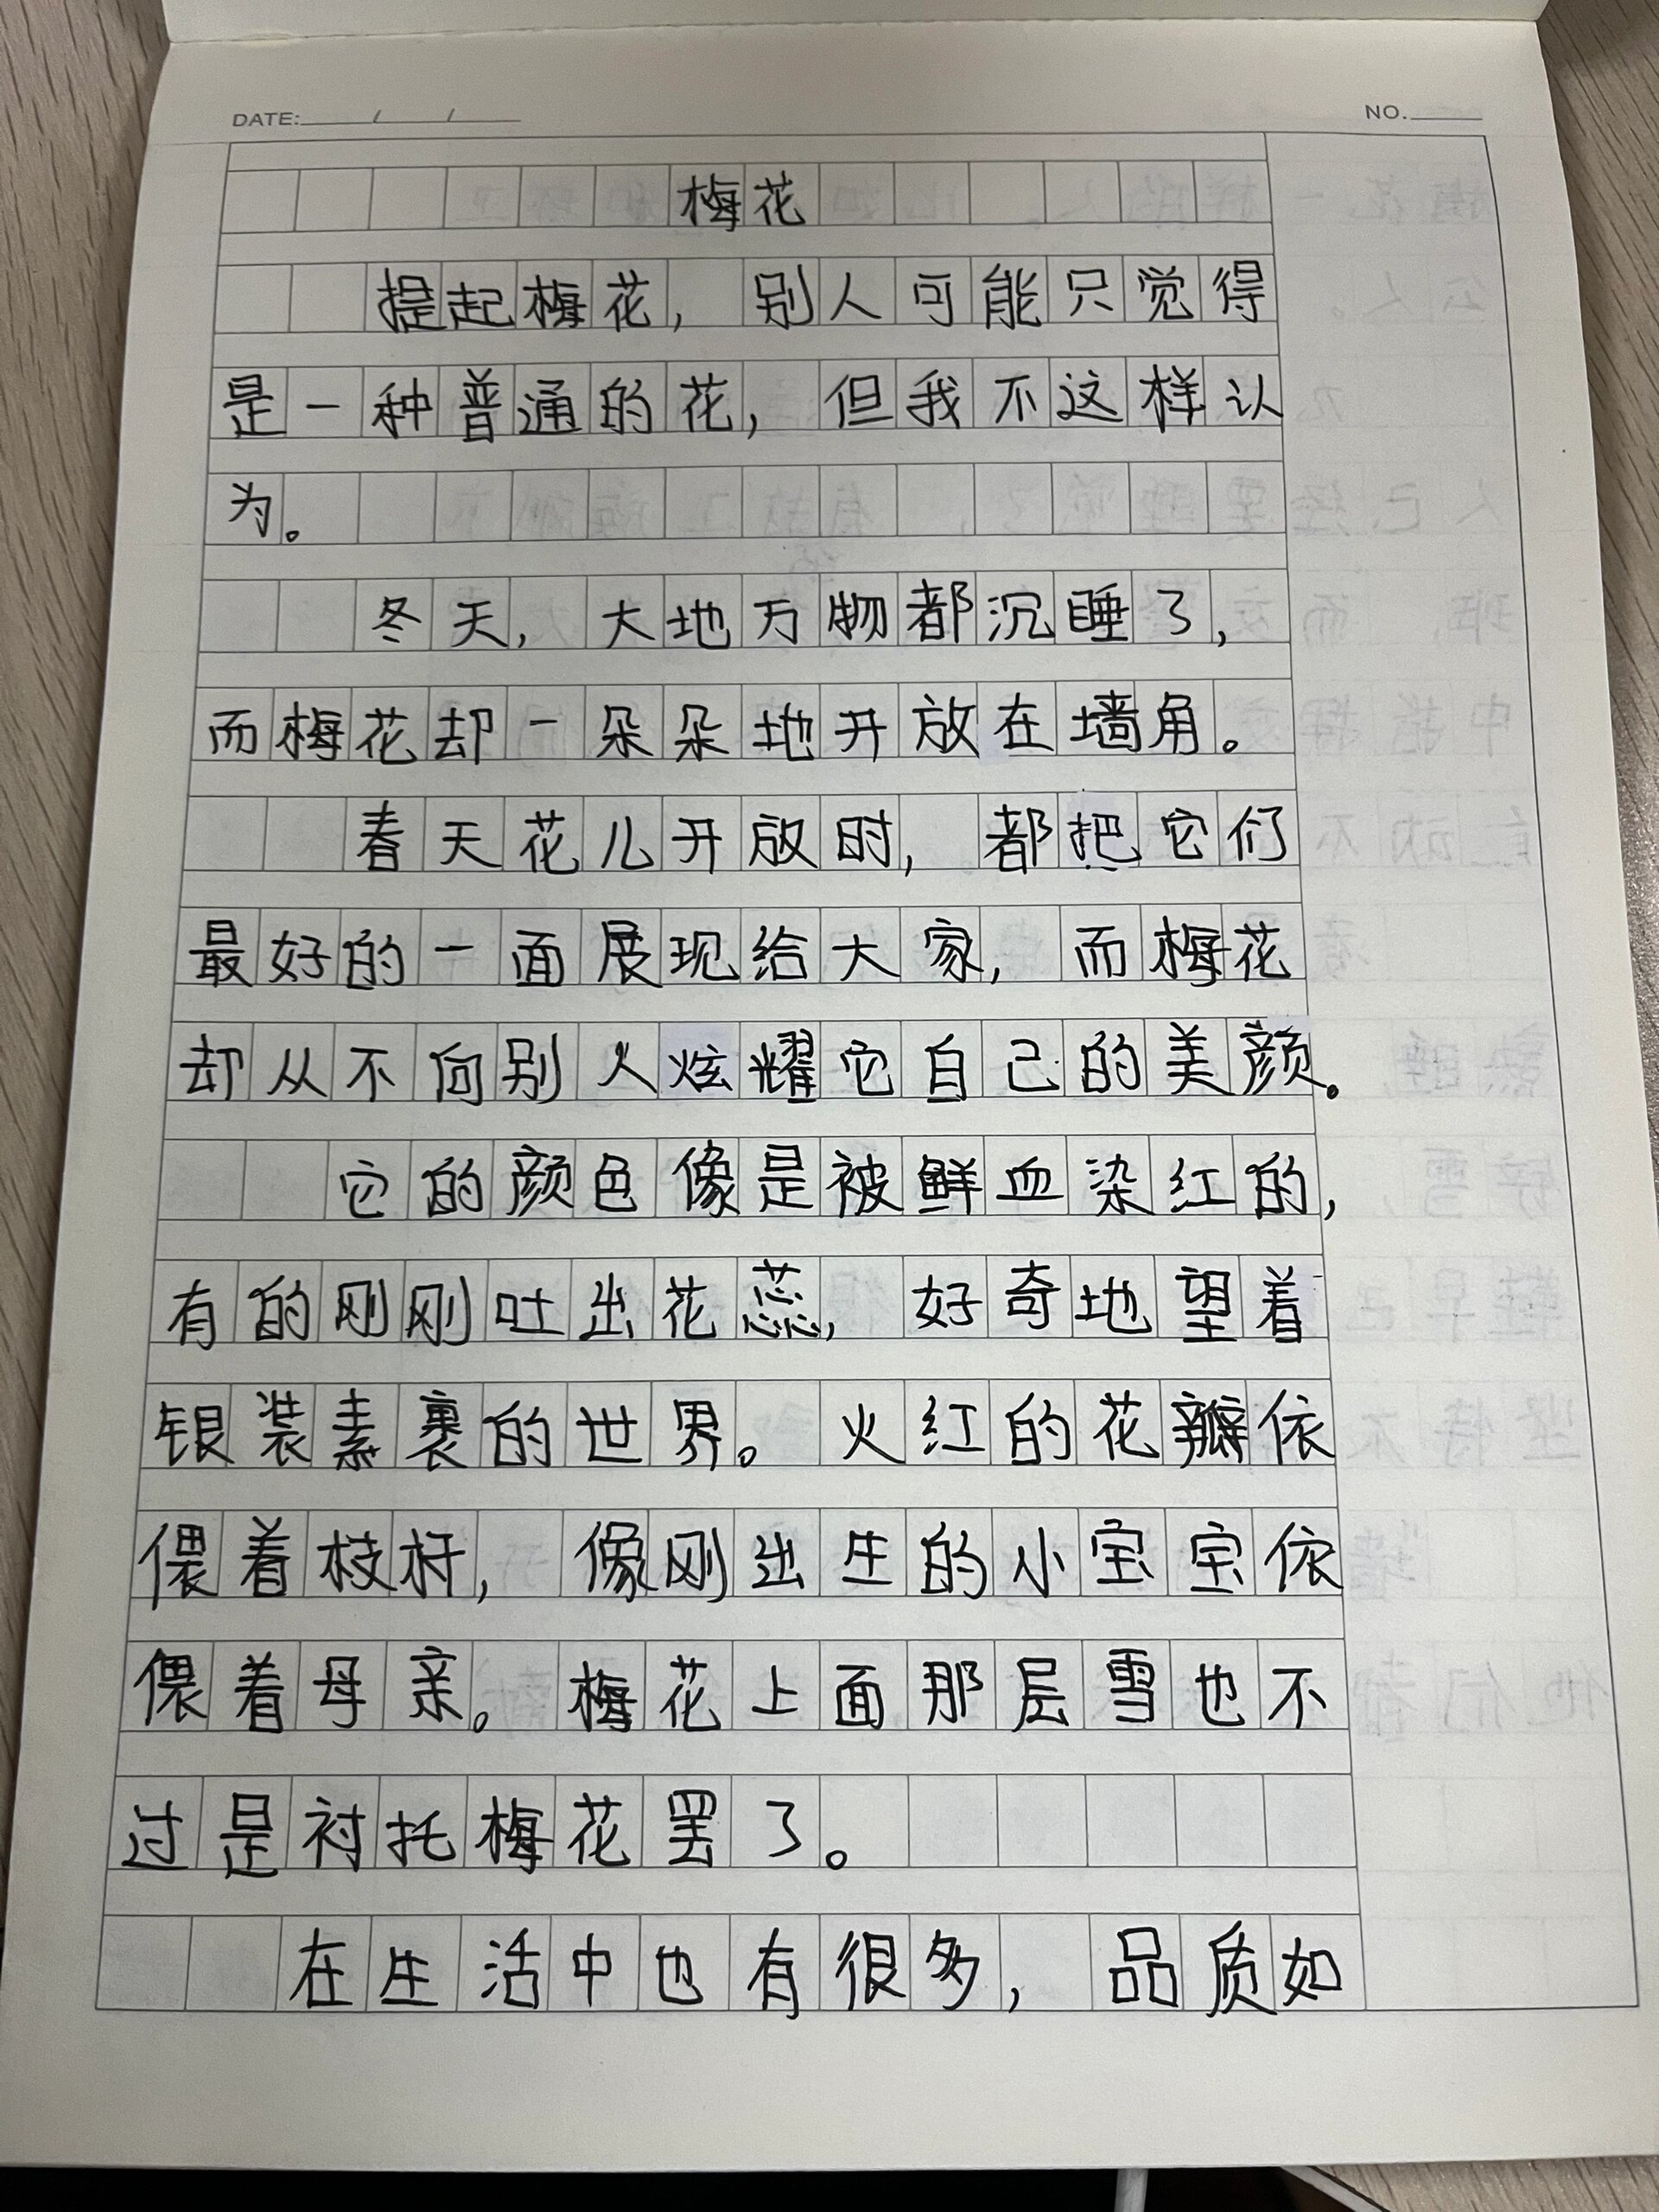 DATE: / /
NO.
梅花
提起梅花，别人可能只觉得
是一种普通的花，但我不这样认
为。
冬天，大地万物都沉睡了，
而梅花却一朵朵地开放在墙角。
春天花儿开放时，都把它们
最好的一面展现给大家，而梅花
却从不向别人炫耀它自己的美颜。
它的颜色像是被鲜血染红的，
有的刚刚吐出花蕊，好奇地望着
银装素裹的世界。火红的花瓣依
偎着枝杆，像刚出生的小宝宝依
偎着母亲。梅花上面那层雪也不
过是衬托梅花罢了。
在生活中也有很多，品质如